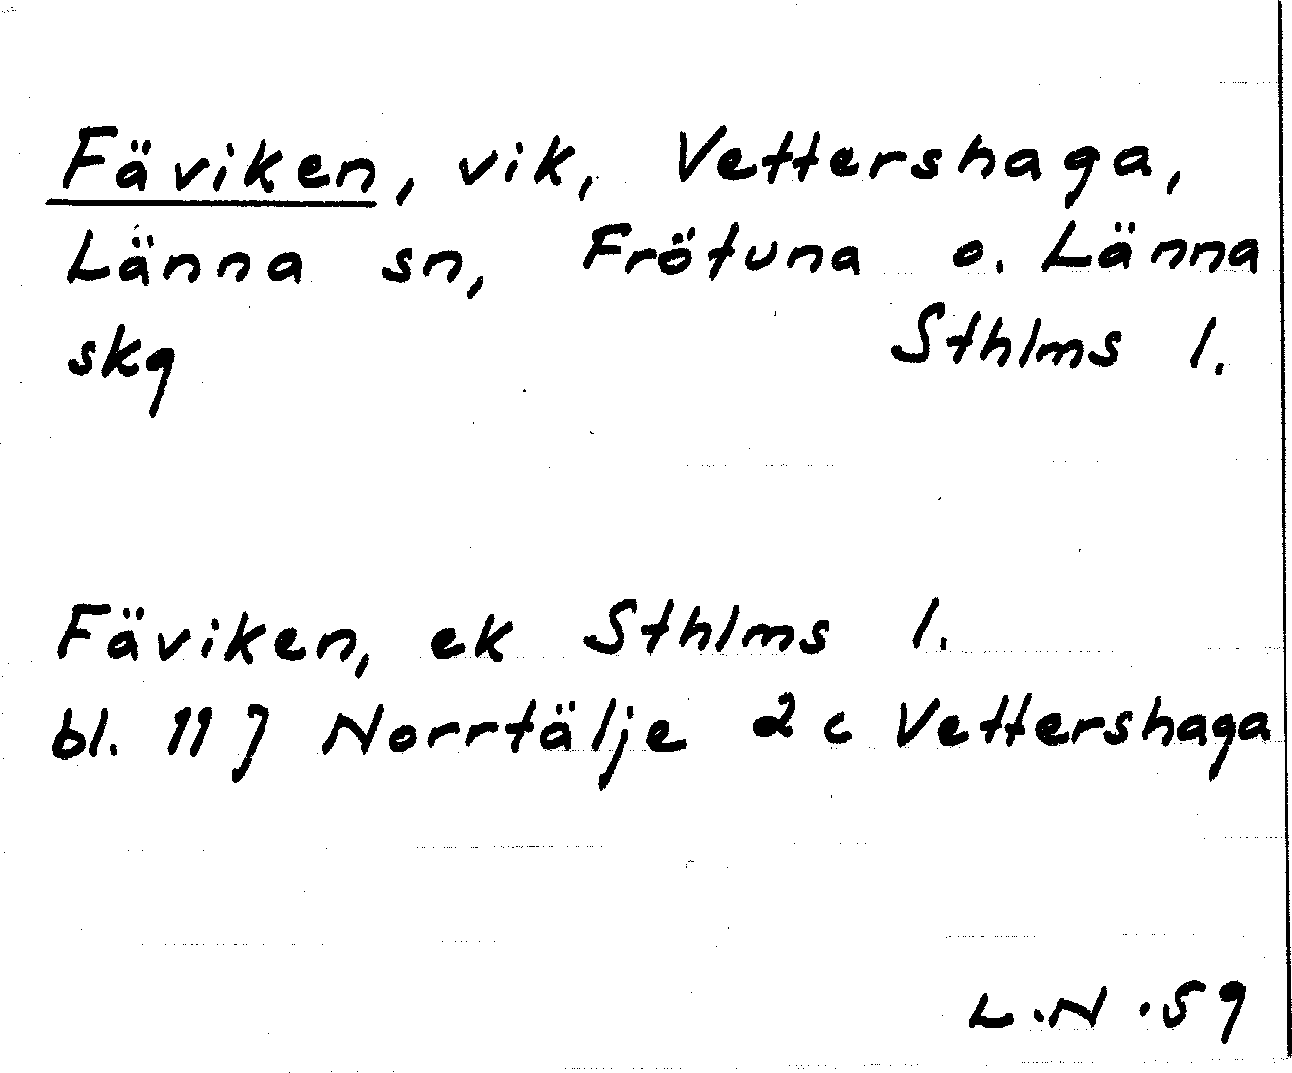 Fäviken, vik, Vettershaga,
Länna sn, Frötuna o. Länna
skg Sthlms l.
Fäviken, ek Sthlms l.
bl. 11 J Norrtälje 2 c Vettershaga
L.N.59